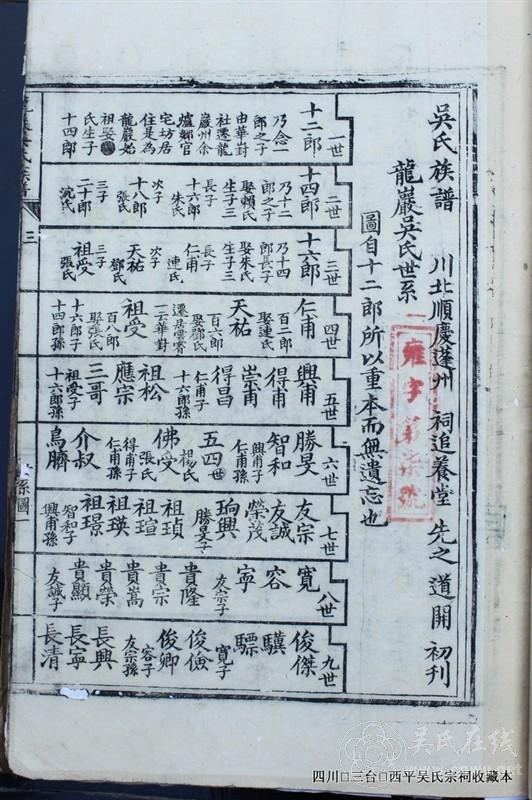 吳氏族譜 川北順慶蓬州 祠追養堂 先之 道開 初刊
龍巖吳氏世系
圖自十二郎所以重本而無遺忘也
雍字第 號
一世
十二郎
乃念一
郎之子
由華對
社遷龍
巖州余
爐鄒官
宅坊居
住是為
龍巖始
祖娶
氏生子
十四郎
二世
十四郎
乃十二
郎之子
娶賴氏
生子三
長子
十六郎
朱氏
次子
十八郎
張氏
三子
二十郎
沈氏
三世
十六郎
乃十四
郎長子
娶朱氏
生子三
長子
仁甫
連氏
次子
天祐
鄧氏
三子
祖受
張氏
四世
仁甫
百二郎
娶連氏
天祐
百六郎
娶鄧氏
遷居雲霄
一云華對
祖受
百八郎
娶張氏
十六郎子
十四郎孫
五世
興甫
得甫
崇甫
得昌
仁甫子
十六郎孫
祖松
應宗
三哥
祖受子
十六郎孫
六世
勝旻
智和
興甫子
仁甫孫
五四世
楊氏
佛受
張氏
得甫子
仁甫孫
介叔
鳥臍
七世
友宗
友誠
榮茂
珦興
勝旻子
祖禎
祖瑄
祖瑛
祖璟
智和子
興甫孫
八世
寬
容
寧
友宗子
貴隆
貴宗
貴嵩
貴榮
貴顯
友誠子
九世
俊傑
驥
驃
寬子
俊儉
俊卿
容子
友宗孫
長興
長寧
長清
三
世系圖一
吴氏在线
四川□三台□西平吴氏宗祠收藏本